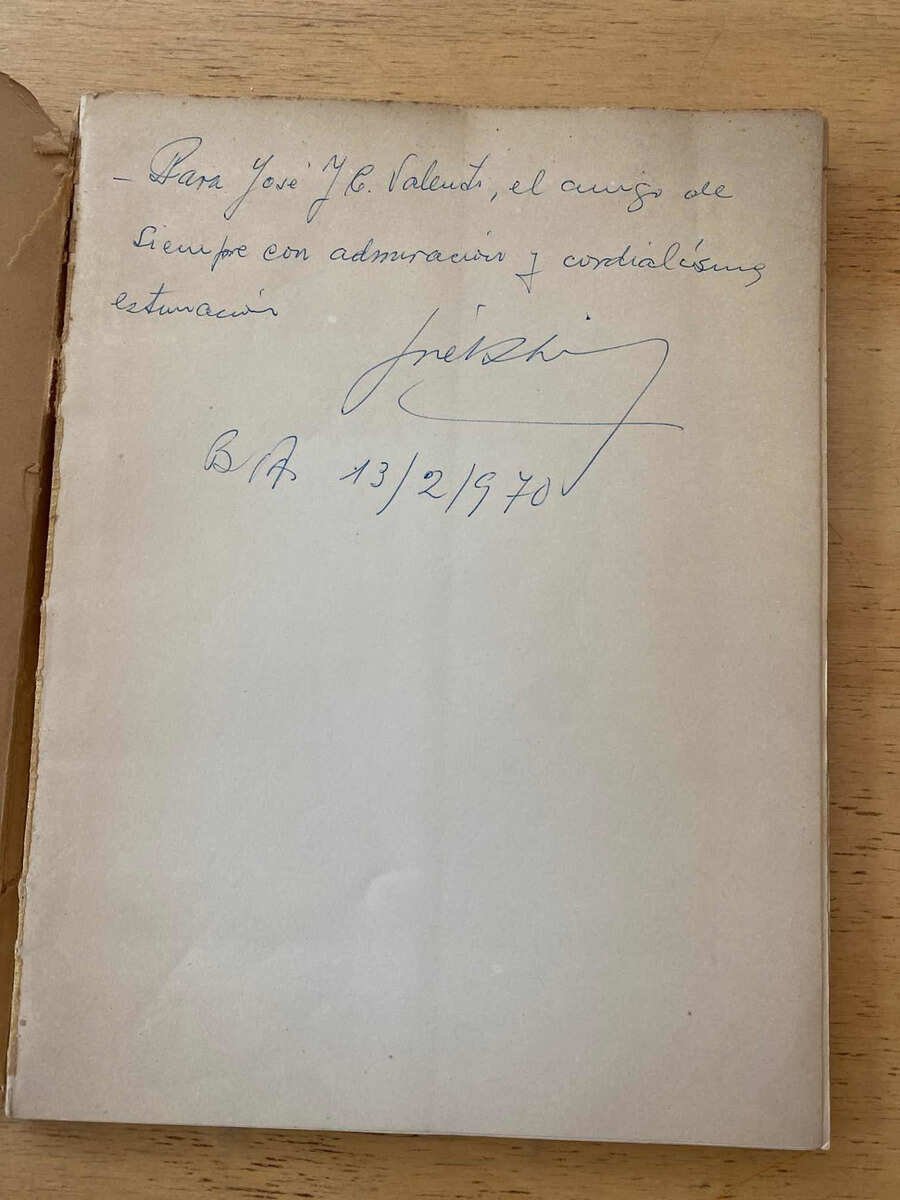 – Para José J C. Valenti, el amigo de
siempre con admiración y cordialísima
estimación
B A 13/2/970